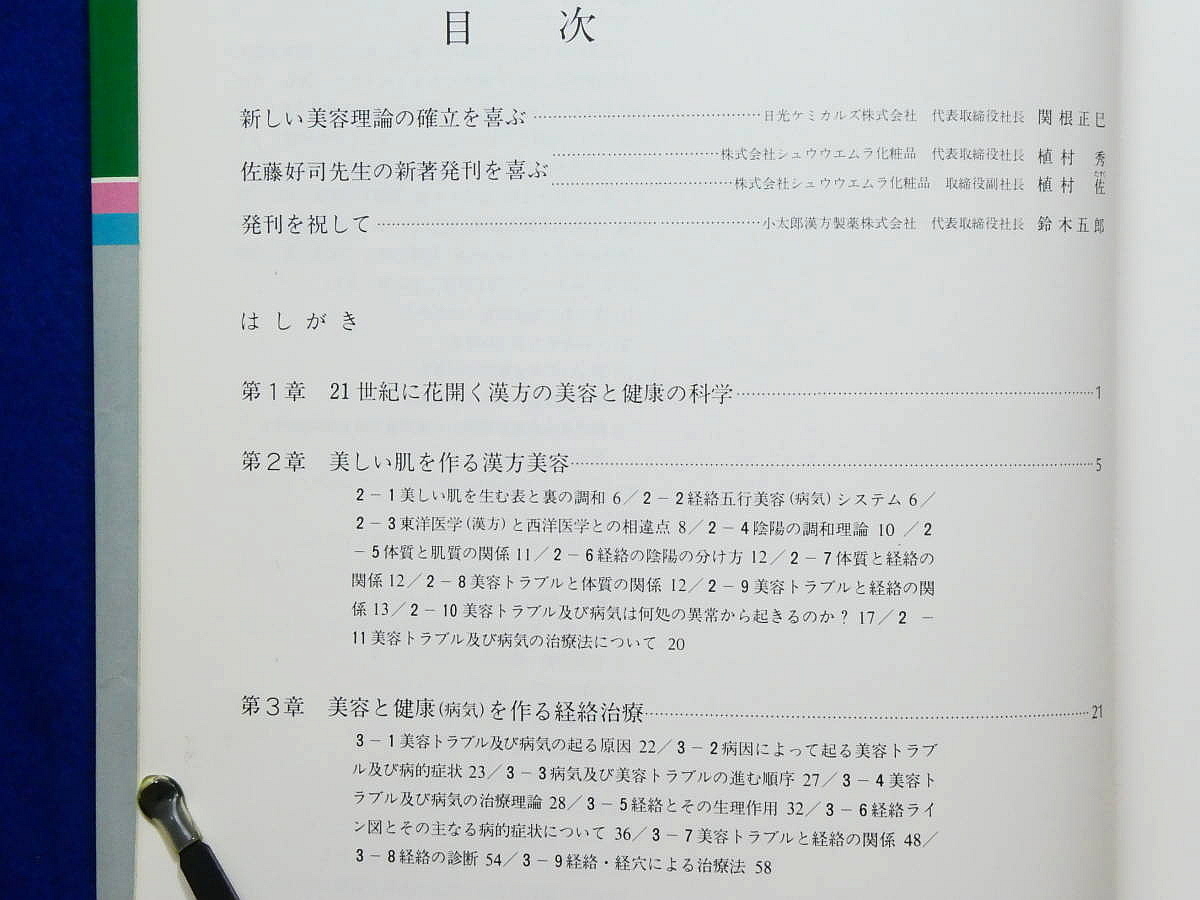 目 次
新しい美容理論の確立を喜ぶ……日光ケミカルズ株式会社 代表取締役社長 関根正巳
佐藤好司先生の新著発刊を喜ぶ……株式会社シュウウエムラ化粧品 代表取締役社長 植村 秀
……株式会社シュウウエムラ化粧品 取締役副社長 植村 佐
発刊を祝して……小太郎漢方製薬株式会社 代表取締役社長 鈴木五郎
はしがき
第1章 21世紀に花開く漢方の美容と健康の科学……1
第2章 美しい肌を作る漢方美容……5
2-1美しい肌を生む表と裏の調和 6/2-2経絡五行美容(病気)システム 6/
2-3東洋医学(漢方)と西洋医学との相違点 8/2-4陰陽の調和理論 10 /2
-5体質と肌質の関係11/2-6経絡の陰陽の分け方12/2-7体質と経絡の
関係12/2-8美容トラブルと体質の関係 12/2-9美容トラブルと経絡の関
係13/2-10美容トラブル及び病気は何処の異常から起きるのか? 17/2 -
11美容トラブル及び病気の治療法について 20
第3章 美容と健康(病気)を作る経絡治療……21
3-1美容トラブル及び病気の起る原因 22/3-2病因によって起る美容トラブ
ル及び病的症状 23/3-3病気及び美容トラブルの進む順序 27/3-4美容ト
ラブル及び病気の治療理論 28/3-5経絡とその生理作用 32/3-6経絡ライ
ン図とその主なる病的症状について 36/3-7美容トラブルと経絡の関係 48/
3-8経絡の診断 54/3-9経絡・経穴による治療法 58